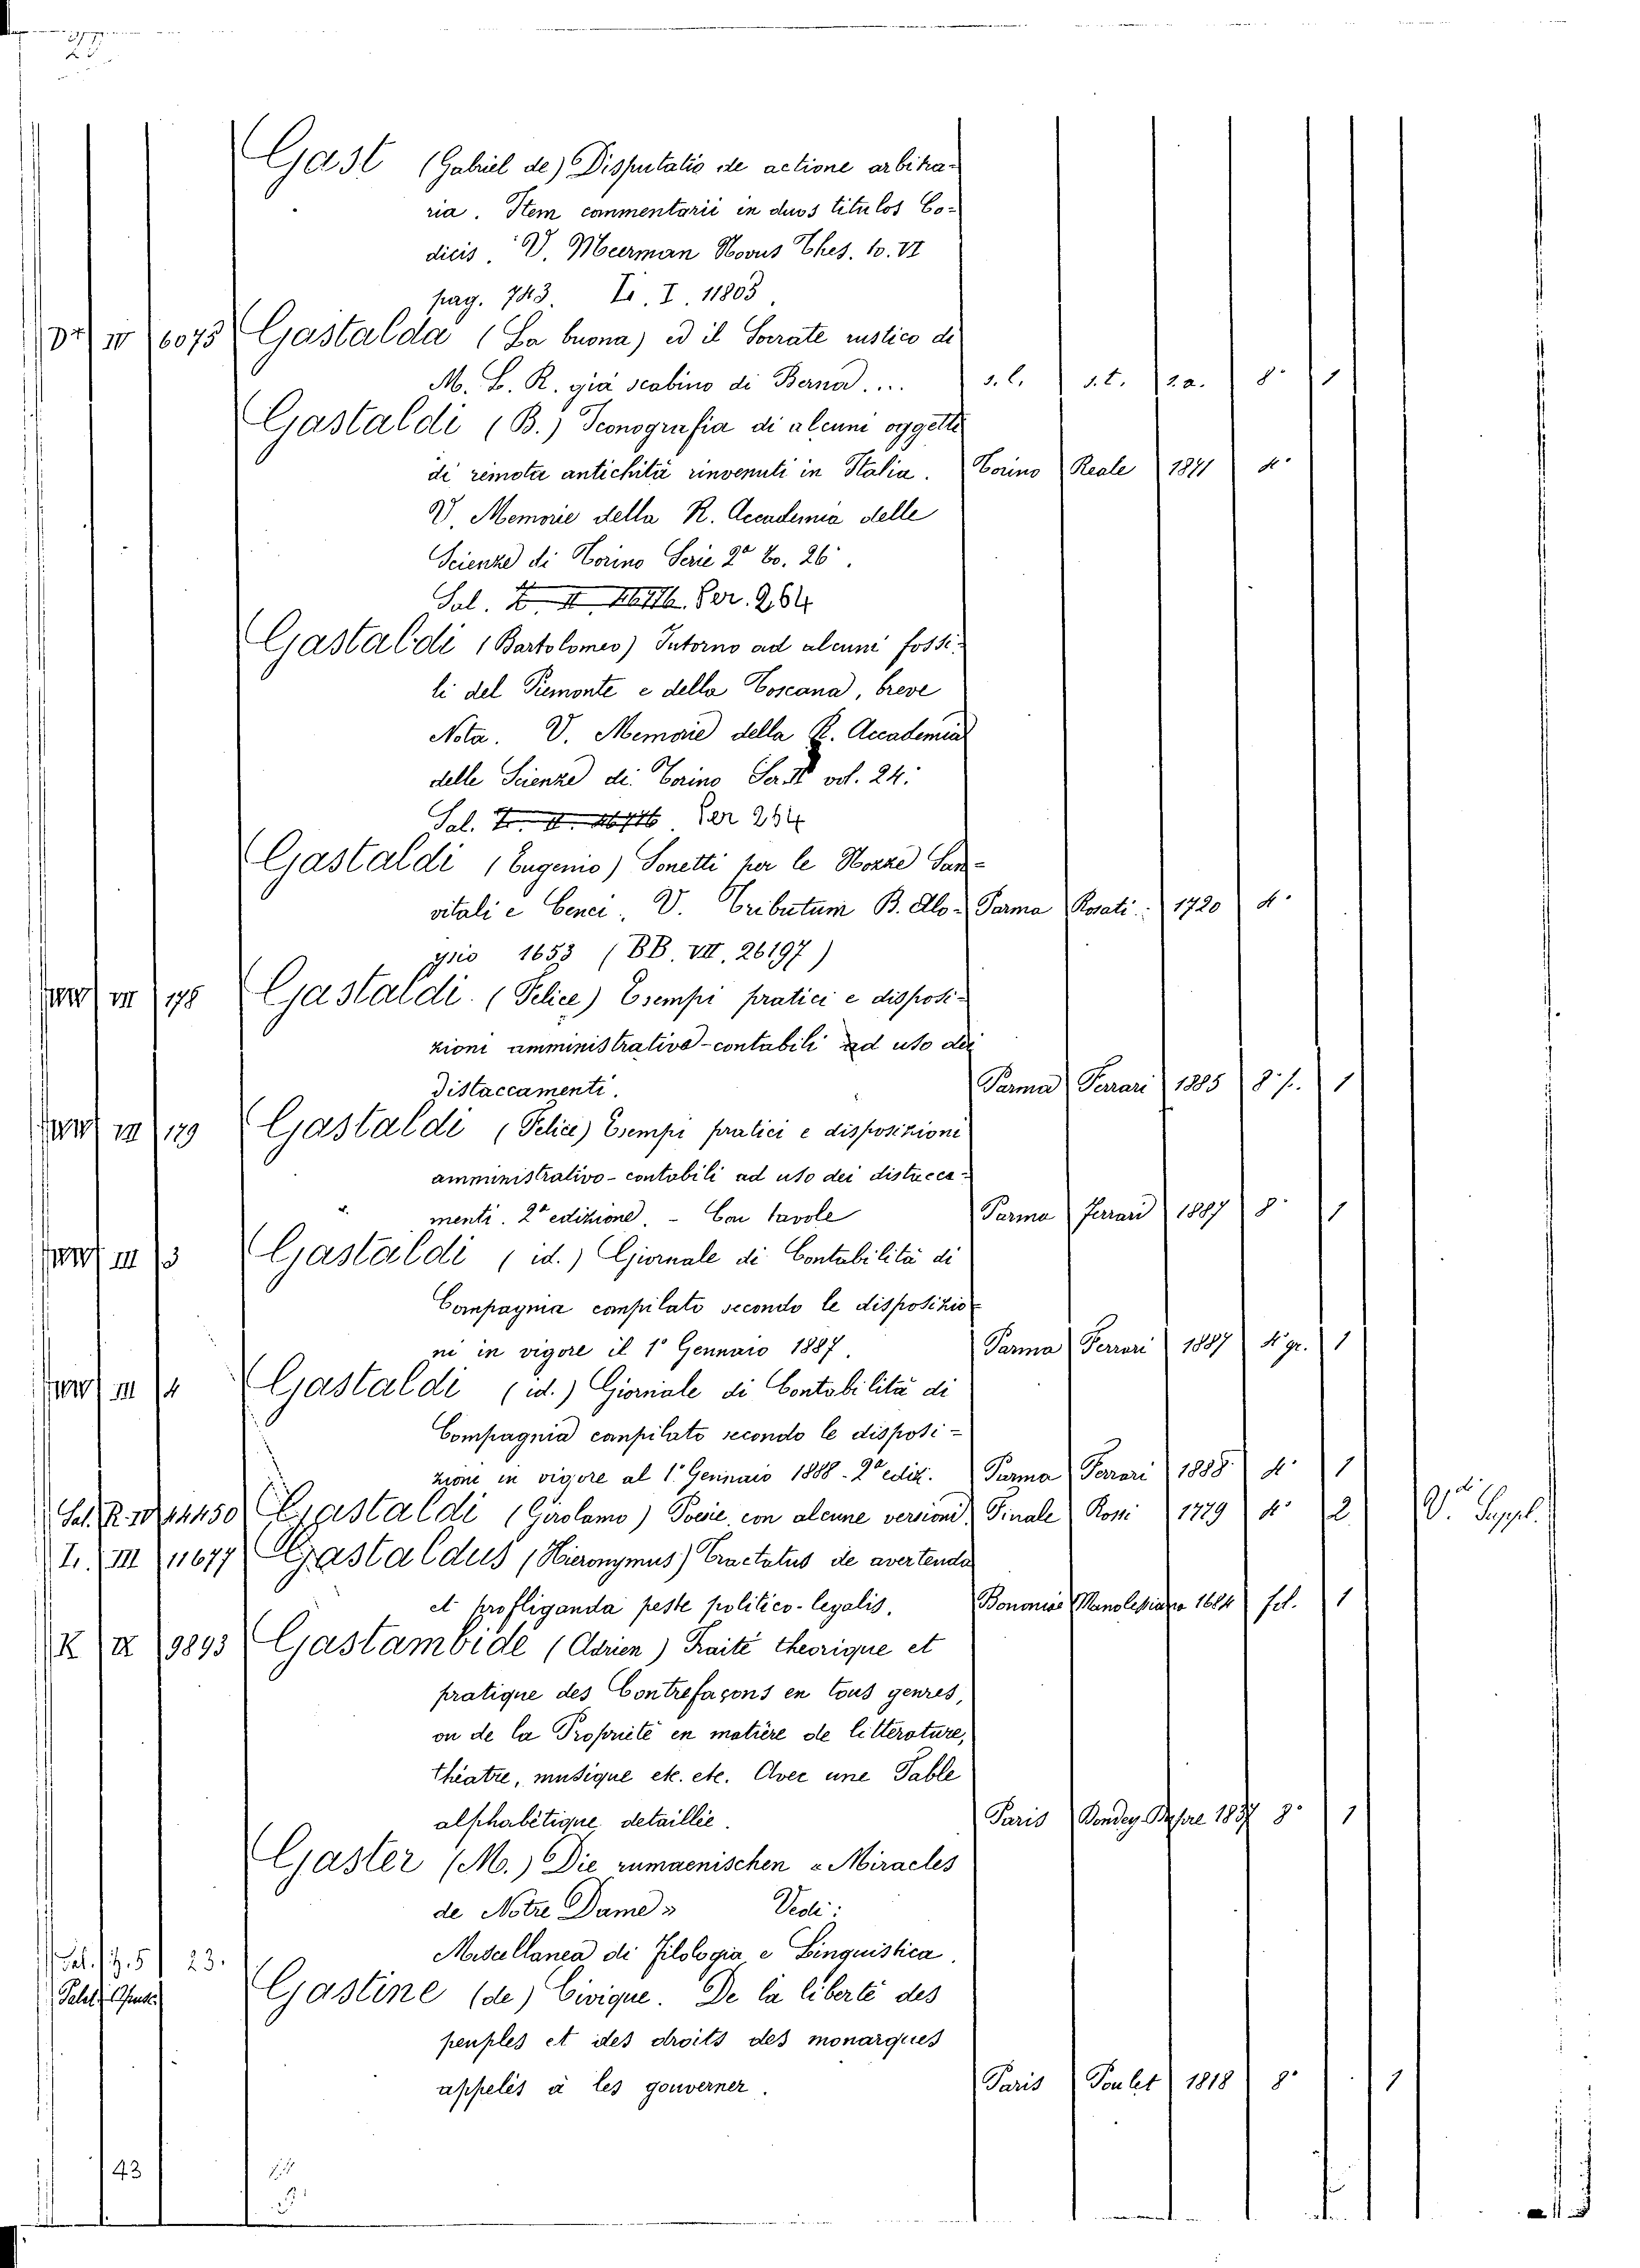 Gast (Gabriel de) Disputatio de actione arbitra-
ria. Item commentarii in duos titulos Co-
dicis. V. Meerman Novus Thes. to. VI
pag. 743. Ir. I. 11803.
IV 6075 Gastalda (La buona) ed il Socrate rustico di
M. L. R. già scabino di Berna.... s. l. s. t. s. a. 8° 1
Gastaldi (B.) Iconografia di alcuni oggetti
di remota antichità rinvenuti in Italia. Torino Reale 1871 4°
V. Memorie della R. Accademia delle
Scienze di Torino Serie 2a to. 26.
Sal. Per. 264
Gastaldi (Bartolomeo) Intorno ad alcuni fossi-
li del Piemonte e della Toscana, breve
Nota. V. Memorie della R. Accademia
delle Scienze di Torino Ser. II vol. 24.
Sal. Per 264
Gastaldi (Eugenio) Sonetti per le Nozze San-
vitali e Cenci. V. Tributum B. Alo- Parma Rosati 1720 4°
ysio 1653 (BB. VII. 26197)
VII 178 Gastaldi (Felice) Esempi pratici e disposi-
zioni amministrativo-contabili ad uso dei
Distaccamenti. Parma Ferrari 1885 8° f. 1
VII 179 Gastaldi (Felice) Esempi pratici e disposizioni
amministrativo-contabili ad uso dei distacca-
menti. 2a edizione. - Con tavole Parma Ferrari 1887 8° 1
III 3 Gastaldi (id.) Giornale di Contabilità di
Compagnia compilato secondo le disposizio-
ni in vigore il 1° Gennaio 1887. Parma Ferrari 1887 4° gr. 1
III 4 Gastaldi (id.) Giornale di Contabilità di
Compagnia compilato secondo le disposi-
zione in vigore al 1° Gennaio 1888 - 2a ediz. Parma Ferrari 1888 4° 1
Sal. R. IV 44450 Gastaldi (Girolamo) Poesie con alcune versioni. Finale Rossi 1779 4° 2 V. Suppl.
I. III 11677 Gastaldus (Hieronymus) Tractatus de avertenda
et profliganda peste politico-legalis. Bononiae Manolessiana 1684 fol. 1
K II 9893 Gastambide (Adrien) Traité theorique et
pratique des Contrefaçons en tous genres,
ou de la Propriété en matière de littérature,
théatre, musique etc. etc. Avec une Table
alphabétique detaillée. Paris 1837 8° 1
Gaster (M.) Die rumaenischen « Miracles
de Notre Dame » Vedi:
Miscellanea di Filologia e Linguistica.
Sal. 5 23.
Gastine (de) Civique. De la liberté des
peuples et des droits des monarques
appelés à les gouverner. Paris Poulet 1818 8° 1
43